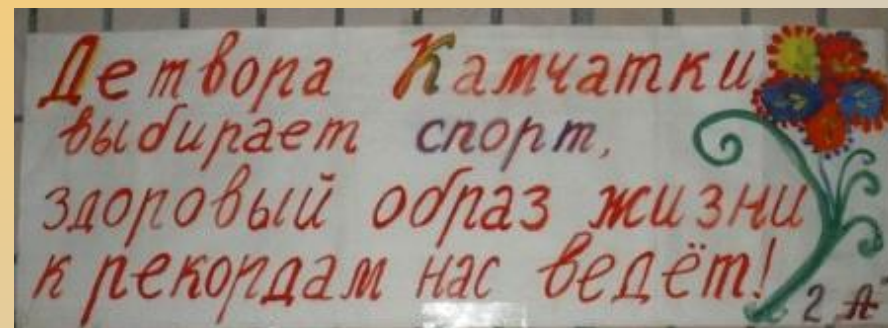 Детвора Камчатки
выбирает спорт,
здоровый образ жизни
к рекордам нас ведёт!
2 А